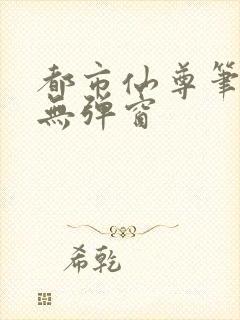 都市仙尊筆
無彈窗
希乾